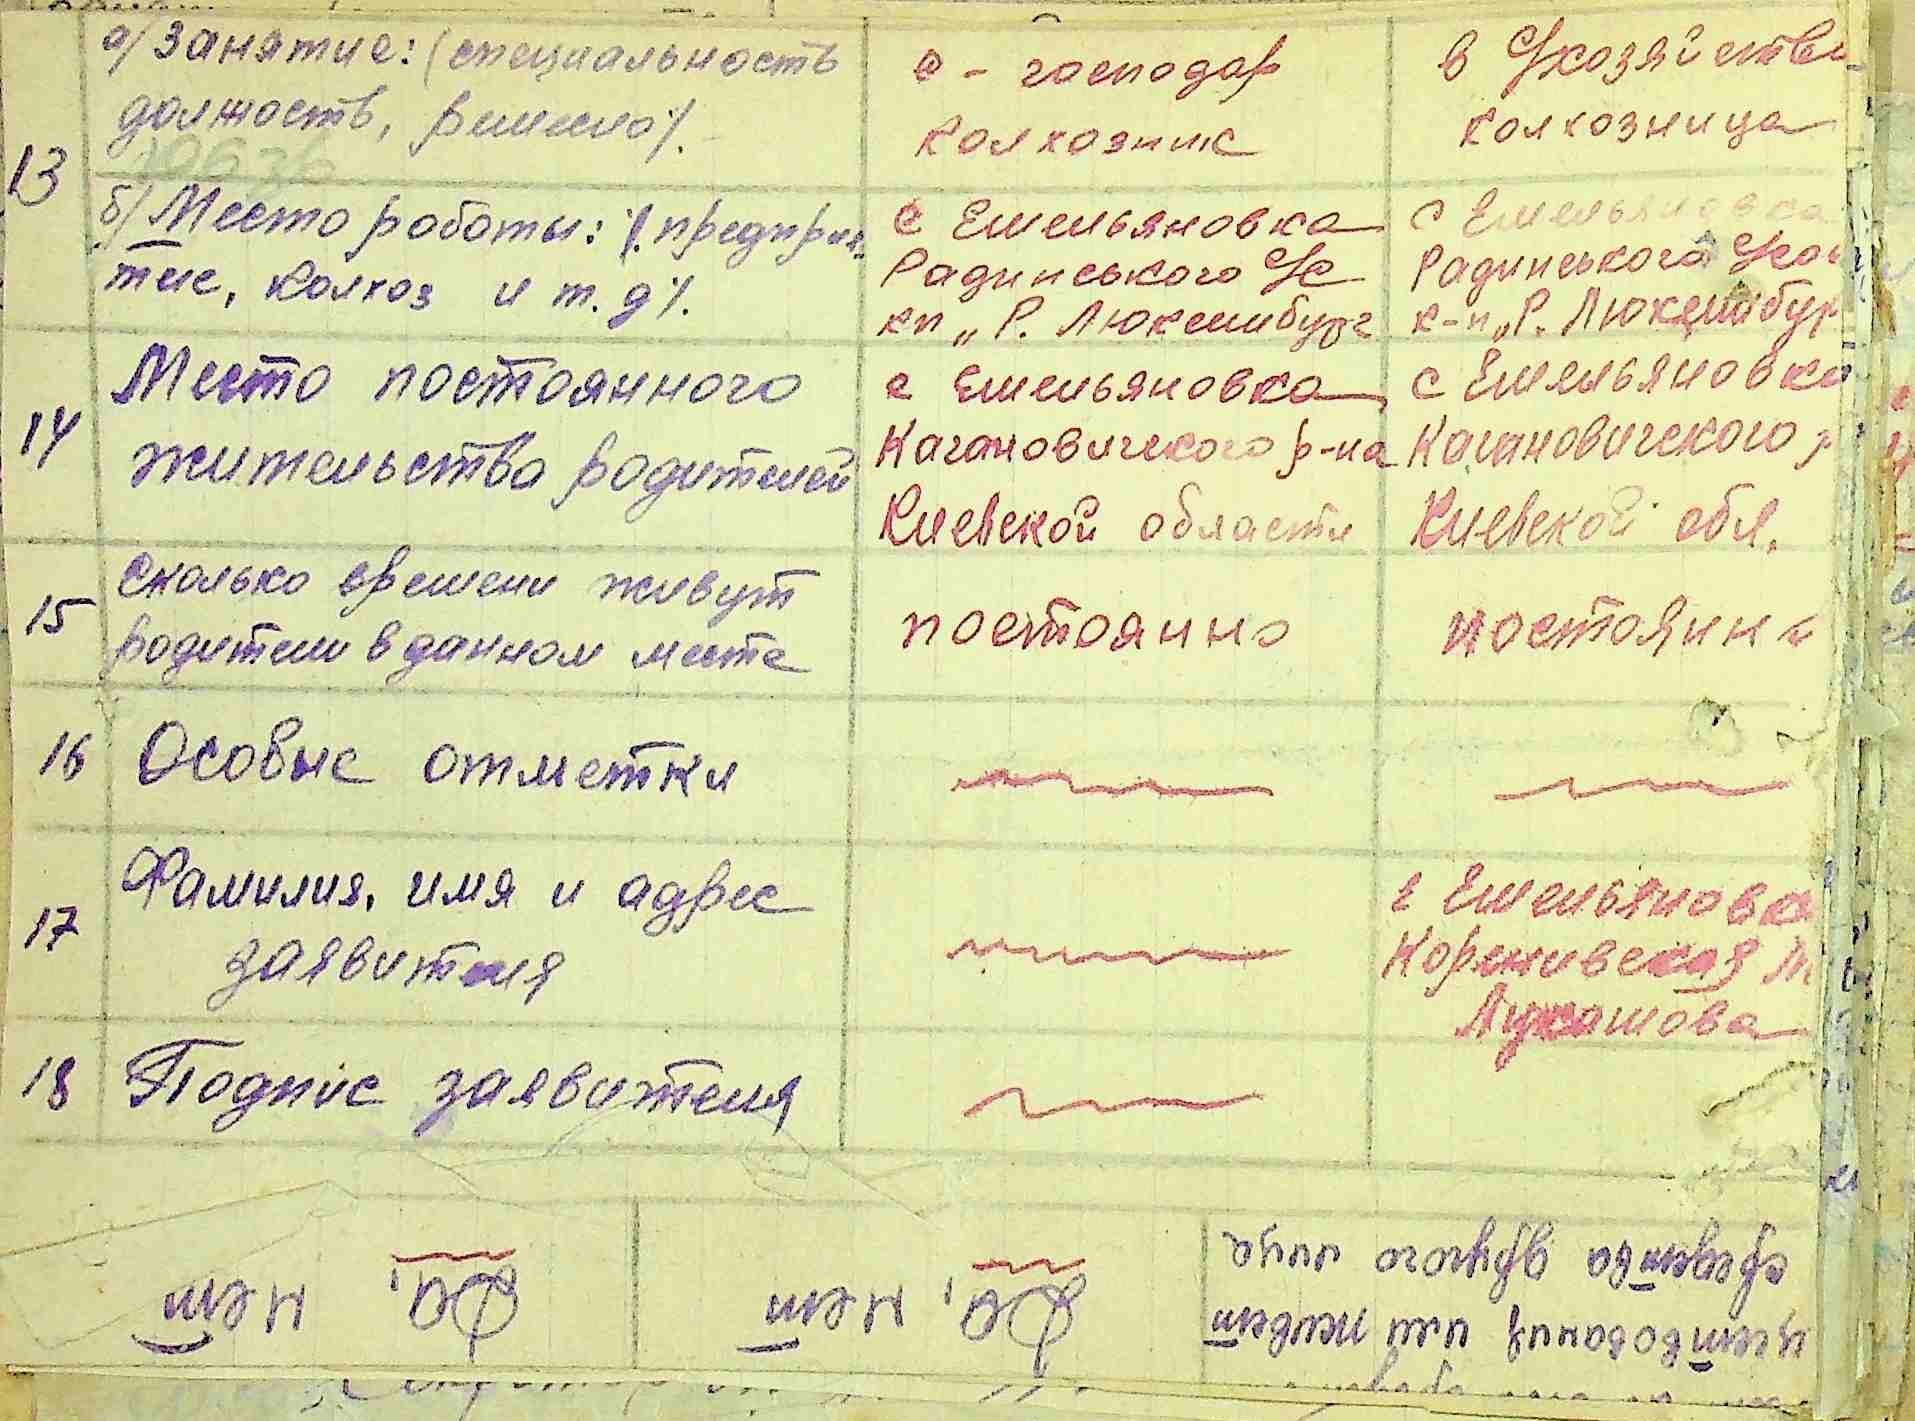 13
а) Занятие: (специальность
должность, ремесло).
с-господар
колхозник
в С/хозяйстви
колхозница
б) Место работы: (предприя-
тие, колхоз и т. д).
с Емельяновка
Радинського С/с
кп „Р. Люксембург
с Емельяновка
Радинського
к-п „Р. Люксембур
14 Место постоянного
жительства родителей
с Емельяновка
Кагановичского р-на
Киевской области
с Емельяновка
Кагановичского р
Киевской обл.
15 Сколько времени живут
родители в данном месте
постоянно
постоянно
16 Особые отметки
17 Фамилия, имя и адрес
заявителя
с Емельяновка
Корениевская М
Лукашова
18 Подпис заявителя
средства другого лица
Да, Нет
Да, Нет